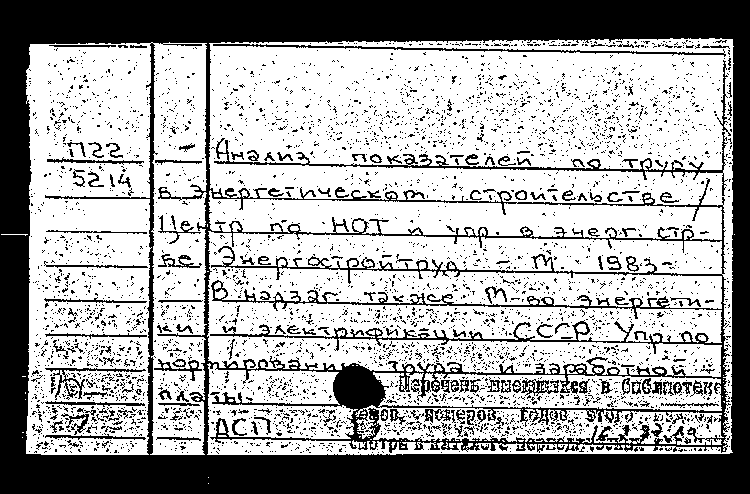 П22 - Анализ показателей по труду
5214 в энергетическом строительстве /
Центр по НОТ и упр. в энерг. стр-
ве Энергостройтруд - М., 1983-
В надзаг. также М-во энергети-
ки и электрификации СССР. Упр. по
нормированию труда и заработной
платы.
Перечень имеющихся в библиотеке
номеров, годов этого
ДСП.
смотри в каталоге